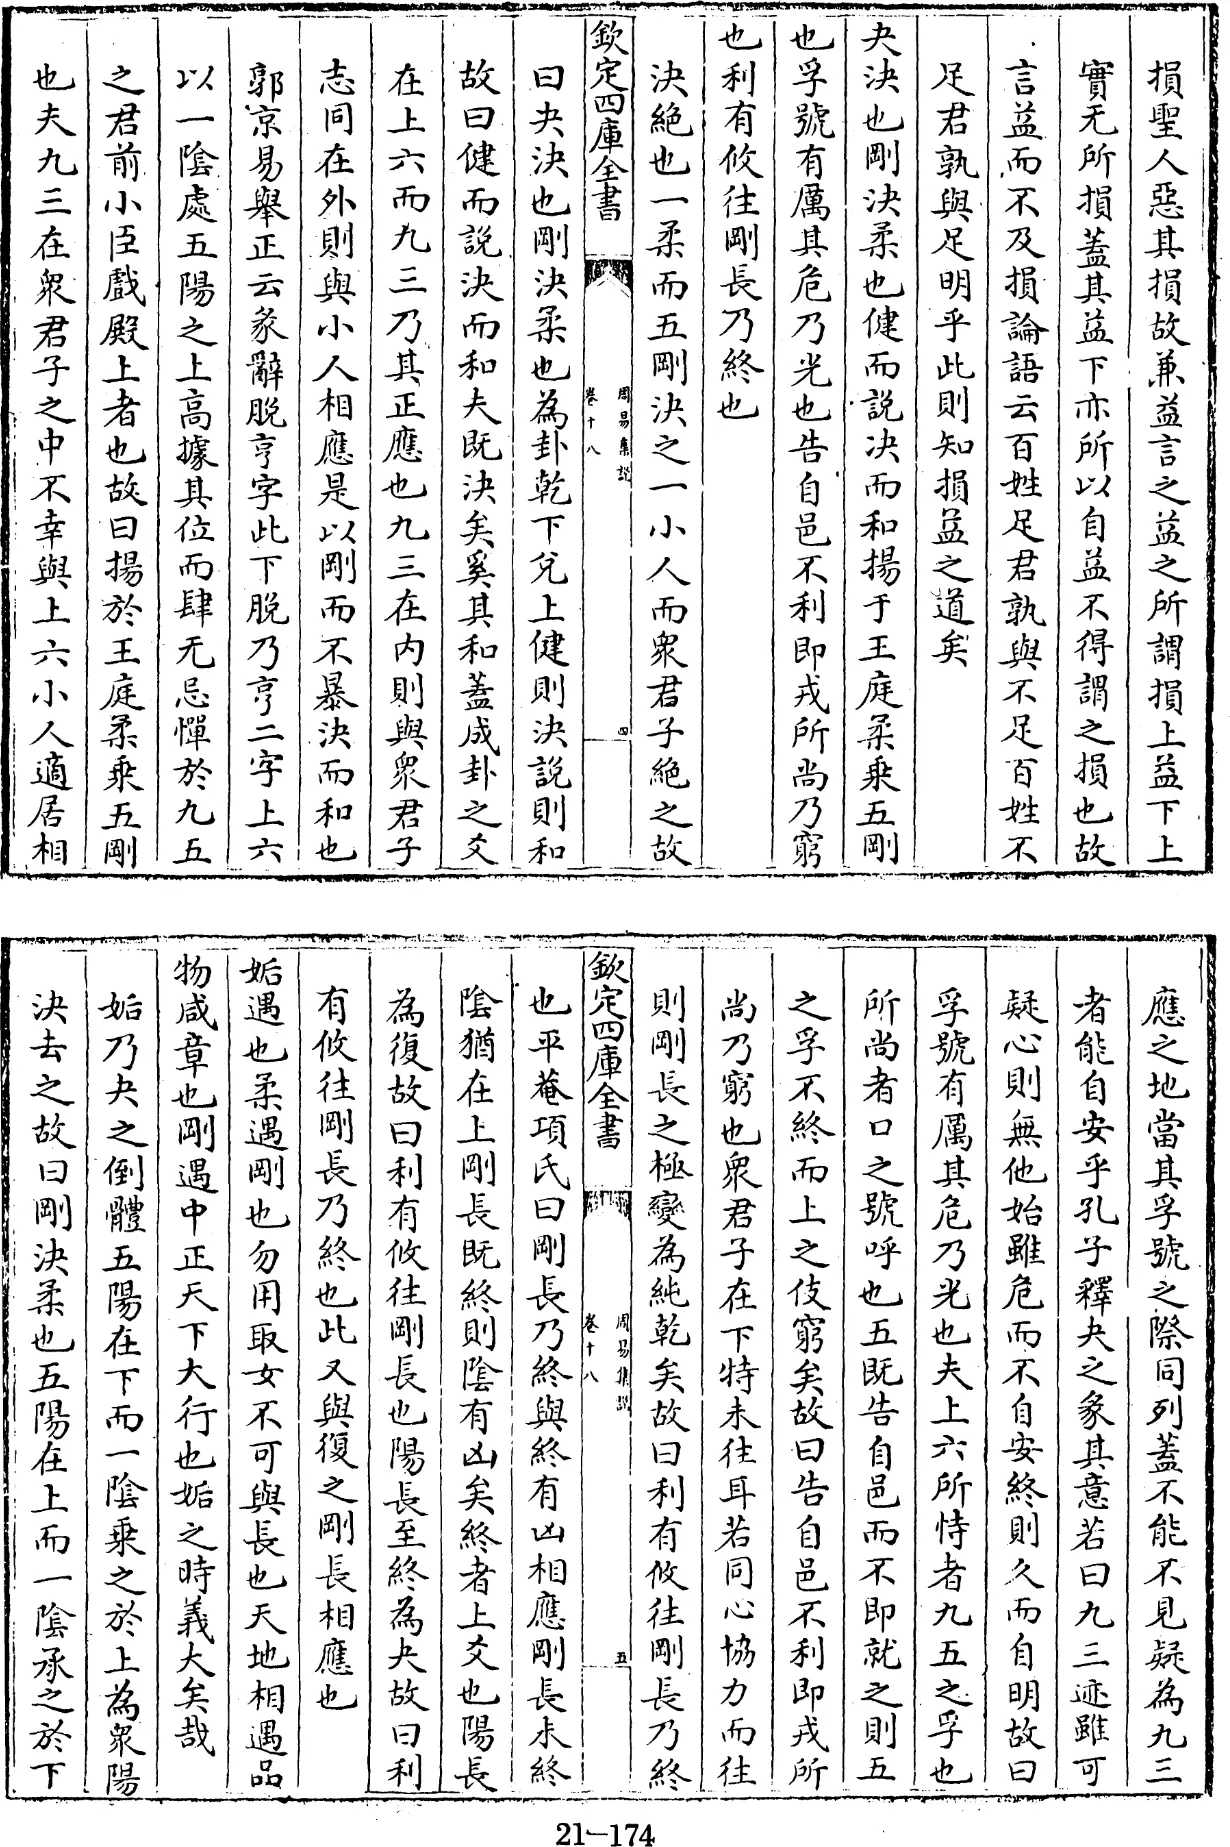 損聖人惡其損故兼益言之益之所謂損上益下上
實无所損蓋其益下亦所以自益不得謂之損也故
言益而不及損論語云百姓足君孰與不足百姓不
足君孰與足明乎此則知損益之道矣
夬決也剛決柔也健而說決而和揚于王庭柔乗五剛
也孚號有厲其危乃光也告自邑不利即戎所尚乃窮
也利有攸往剛長乃終也
決絶也一柔而五剛決之一小人而衆君子絶之故
欽定四庫全書
周易集說
卷十八
四
曰夬決也剛決柔也為卦乾下兌上健則決說則和
故曰健而說決而和夫既決矣奚其和蓋成卦之爻
在上六而九三乃其正應也九三在内則與衆君子
志同在外則與小人相應是以剛而不暴決而和也
郭京易舉正云彖辭脫亨字此下脫乃亨二字上六
以一陰處五陽之上高據其位而肆无忌憚於九五
之君前小臣戲殿上者也故曰揚於王庭柔乗五剛
也夫九三在衆君子之中不幸與上六小人適居相
應之地當其孚號之際同列蓋不能不見疑為九三
者能自安乎孔子釋夬之彖其意若曰九三迹雖可
疑心則無他始雖危而不自安終則久而自明故曰
孚號有厲其危乃光也夫上六所恃者九五之孚也
所尚者口之號呼也五既告自邑而不即就之則五
之孚不終而上之伎窮矣故曰告自邑不利即戎所
尚乃窮也衆君子在下特未往耳若同心恊力而往
則剛長之極變為純乾矣故曰利有攸往剛長乃終
欽定四庫全書
周易集說
卷十八
五
也平菴項氏曰剛長乃終與終有凶相應剛長未終
陰猶在上剛長既終則陰有凶矣終者上爻也陽長
為復故曰利有攸往剛長也陽長至終為夬故曰利
有攸往剛長乃終也此又與復之剛長相應也
姤遇也柔遇剛也勿用取女不可與長也天地相遇品
物咸章也剛遇中正天下大行也姤之時義大矣哉
姤乃夬之倒體五陽在下而一陰乗之於上為衆陽
決去之故曰剛決柔也五陽在上而一陰承之於下
21-174